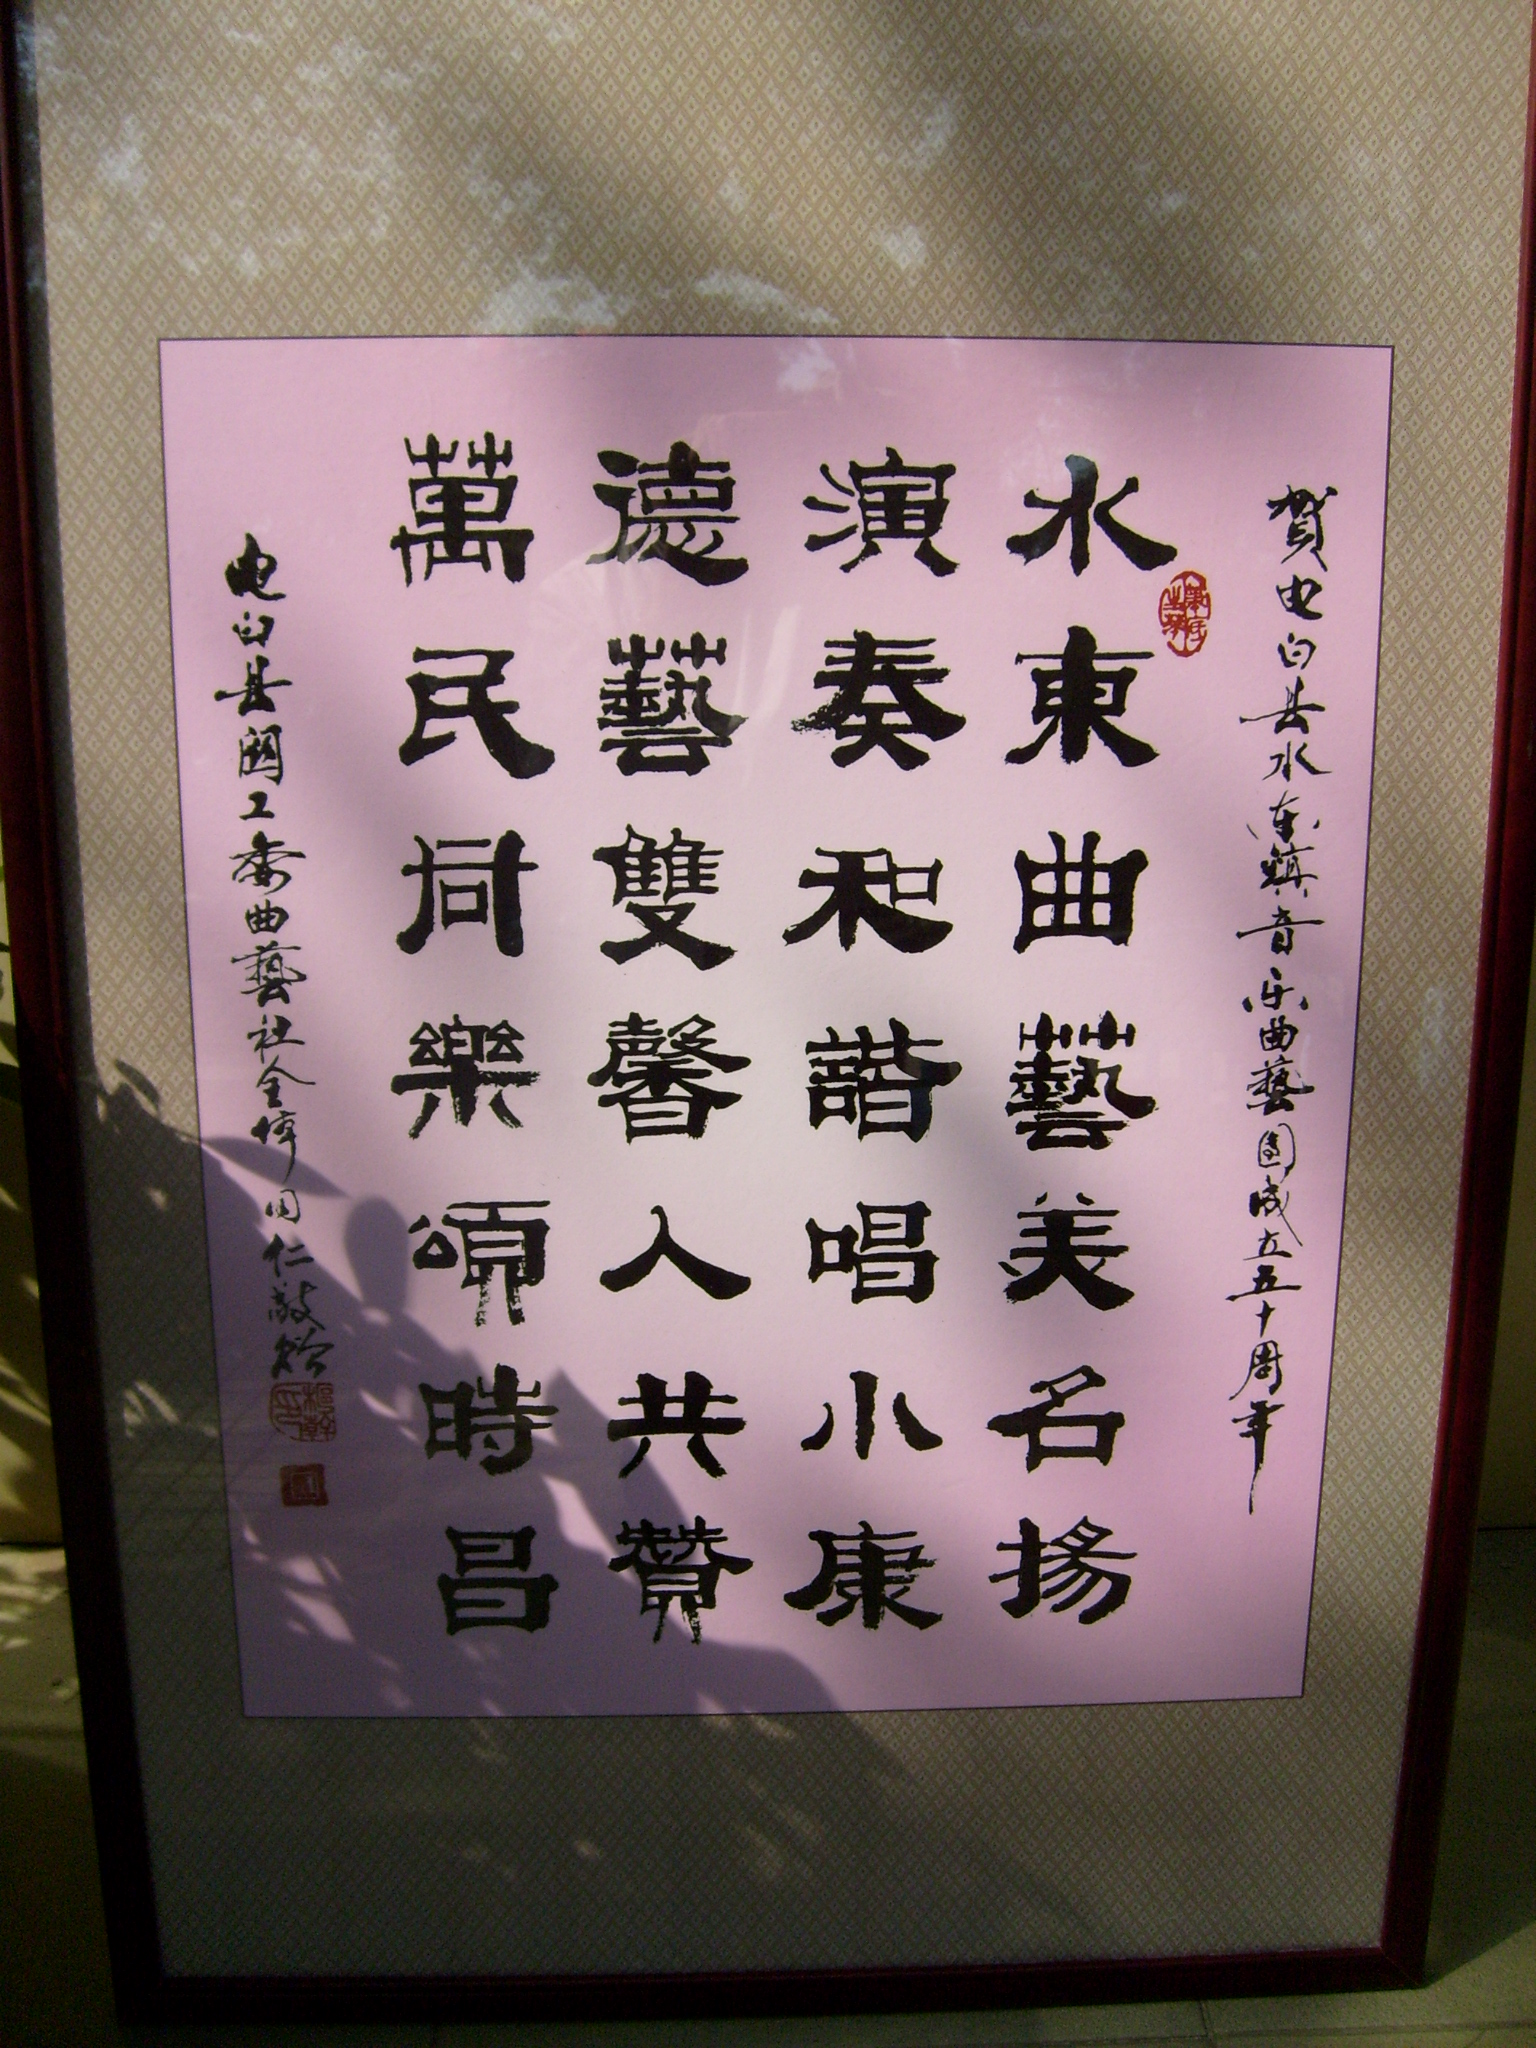 賀电白县水东镇音乐曲藝团成立五十周年
水東曲藝美名揚
演奏和諧唱小康
德藝雙馨人共贊
萬民同樂頌時昌
电白县関工委曲藝社全体同仁敬贈